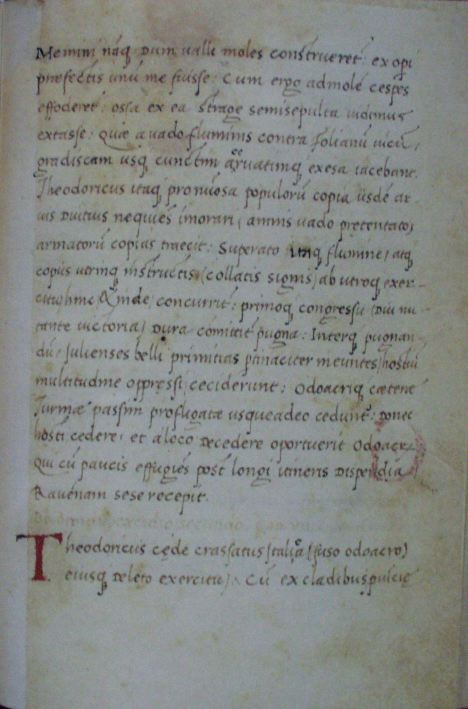 Memini nãq; dum valli moles construeret᷑: ex opi
pręfectis unũ me fuisse: Cum ergo ad molẽ cespes
effoderet᷑: ossa ex ea strage semisepulta vidimus
extasse: Quæ a vado fluminis contra folianũ vicũ,
gradiscam usq; cunctim aceruatimq; exesa iacebant.
Theodoricus itaq; pro numosa populorũ copia iisdẽ ar
uis diutius nequiẽs imorari, amnis vado prętentato,
armatorũ copias traecit: Superato itaq; flumine, atq;
copiis utrinq; instructis, (collatis signis) ab utroq; exer-
citu, hinc & inde, concurrit᷑: primoq; congressu, Diu nu
tante victoria, dura comittit᷑ pugna: Interq; pugnan
dũ, Julienses belli primitias ptinaciter ineuntes, hostiũ
multitudine oppressi, ceciderunt: Odoacriq; cæteræ
turmæ passim profugatæ usqueadeo cedunt᷑: donec
hosti cedere, et a loco decedere oportuerit Odoacrẽ
Qui cũ paucis effugiẽs post longi itineris dispendia
Rauenam sese recepit.
Theodoricus cęde crassatus Italia, (fuso odoacro)
eiusq; deleto exercitu, Cũ ex cladibus